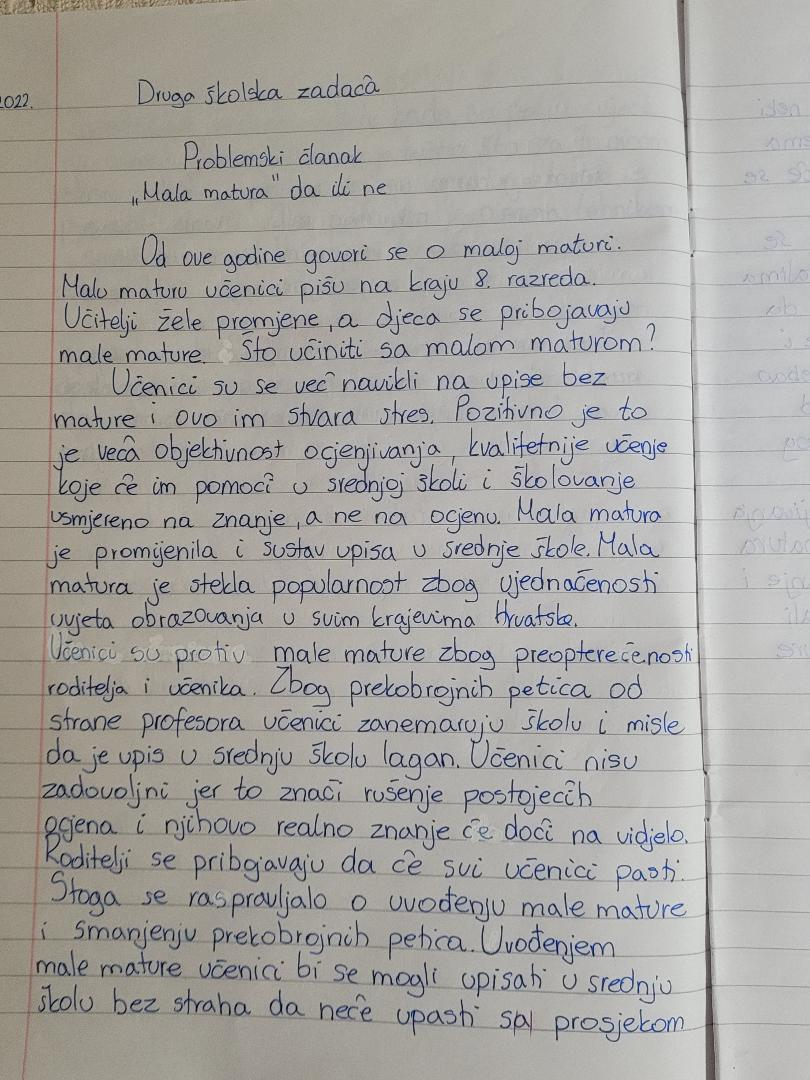 2022.
Druga školska zadaća
Problemski članak
„Mala matura" da ili ne
Od ove godine govori se o maloj maturi.
Malu maturu učenici pišu na kraju 8. razreda.
Učitelji žele promjene, a djeca se pribojavaju
male mature. Što učiniti sa malom maturom?
Učenici su se već navikli na upise bez
mature i ovo im stvara stres. Pozitivno je to
je veća objektivnost ocjenjivanja, kvalitetnije učenje
koje će im pomoći u srednjoj školi i školovanje
usmjereno na znanje, a ne na ocjenu. Mala matura
je promijenila i sustav upisa u srednje škole. Mala
matura je stekla popularnost zbog ujednačenosti
uvjeta obrazovanja u svim krajevima Hrvatske.
Učenici su protiv male mature zbog preopterećenosti
roditelja i učenika. Zbog prekobrojnih petica od
strane profesora učenici zanemaruju školu i misle
da je upis u srednju školu lagan. Učenici nisu
zadovoljni jer to znači rušenje postojećih
ocjena i njihovo realno znanje će doći na vidjelo.
Roditelji se pribojavaju da će svi učenici pasti.
Stoga se raspravljalo o uvođenju male mature
i smanjenju prekobrojnih petica. Uvođenjem
male mature učenici bi se mogli upisati u srednju
školu bez straha da neće upasti sa prosjekom